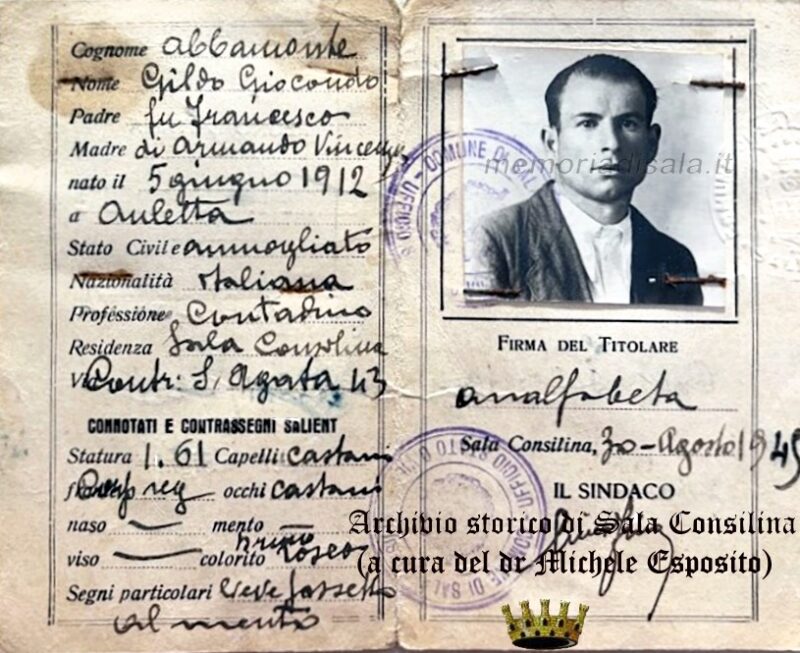 Cognome Abbamonte
Nome Gildo Giocondo
Padre fu Francesco
Madre di Armando Vincenza
nato il 5 giugno 1912
a Auletta
Stato Civile ammogliato
Nazionalità Italiana
Professione Contadino
Residenza Sala Consilina
Via Contr: S. Agata 43
CONNOTATI E CONTRASSEGNI SALIENTI
Statura 1.61 Capelli castani
reg occhi castani
naso mento
viso colorito bruno roseo
Segni particolari lieve fossetta
al mento
memoriadisala.it
FIRMA DEL TITOLARE
analfabeta
Sala Consilina, 30-Agosto 1945
IL SINDACO
Archivio storico di Sala Consilina
(a cura del dr Michele Esposito)